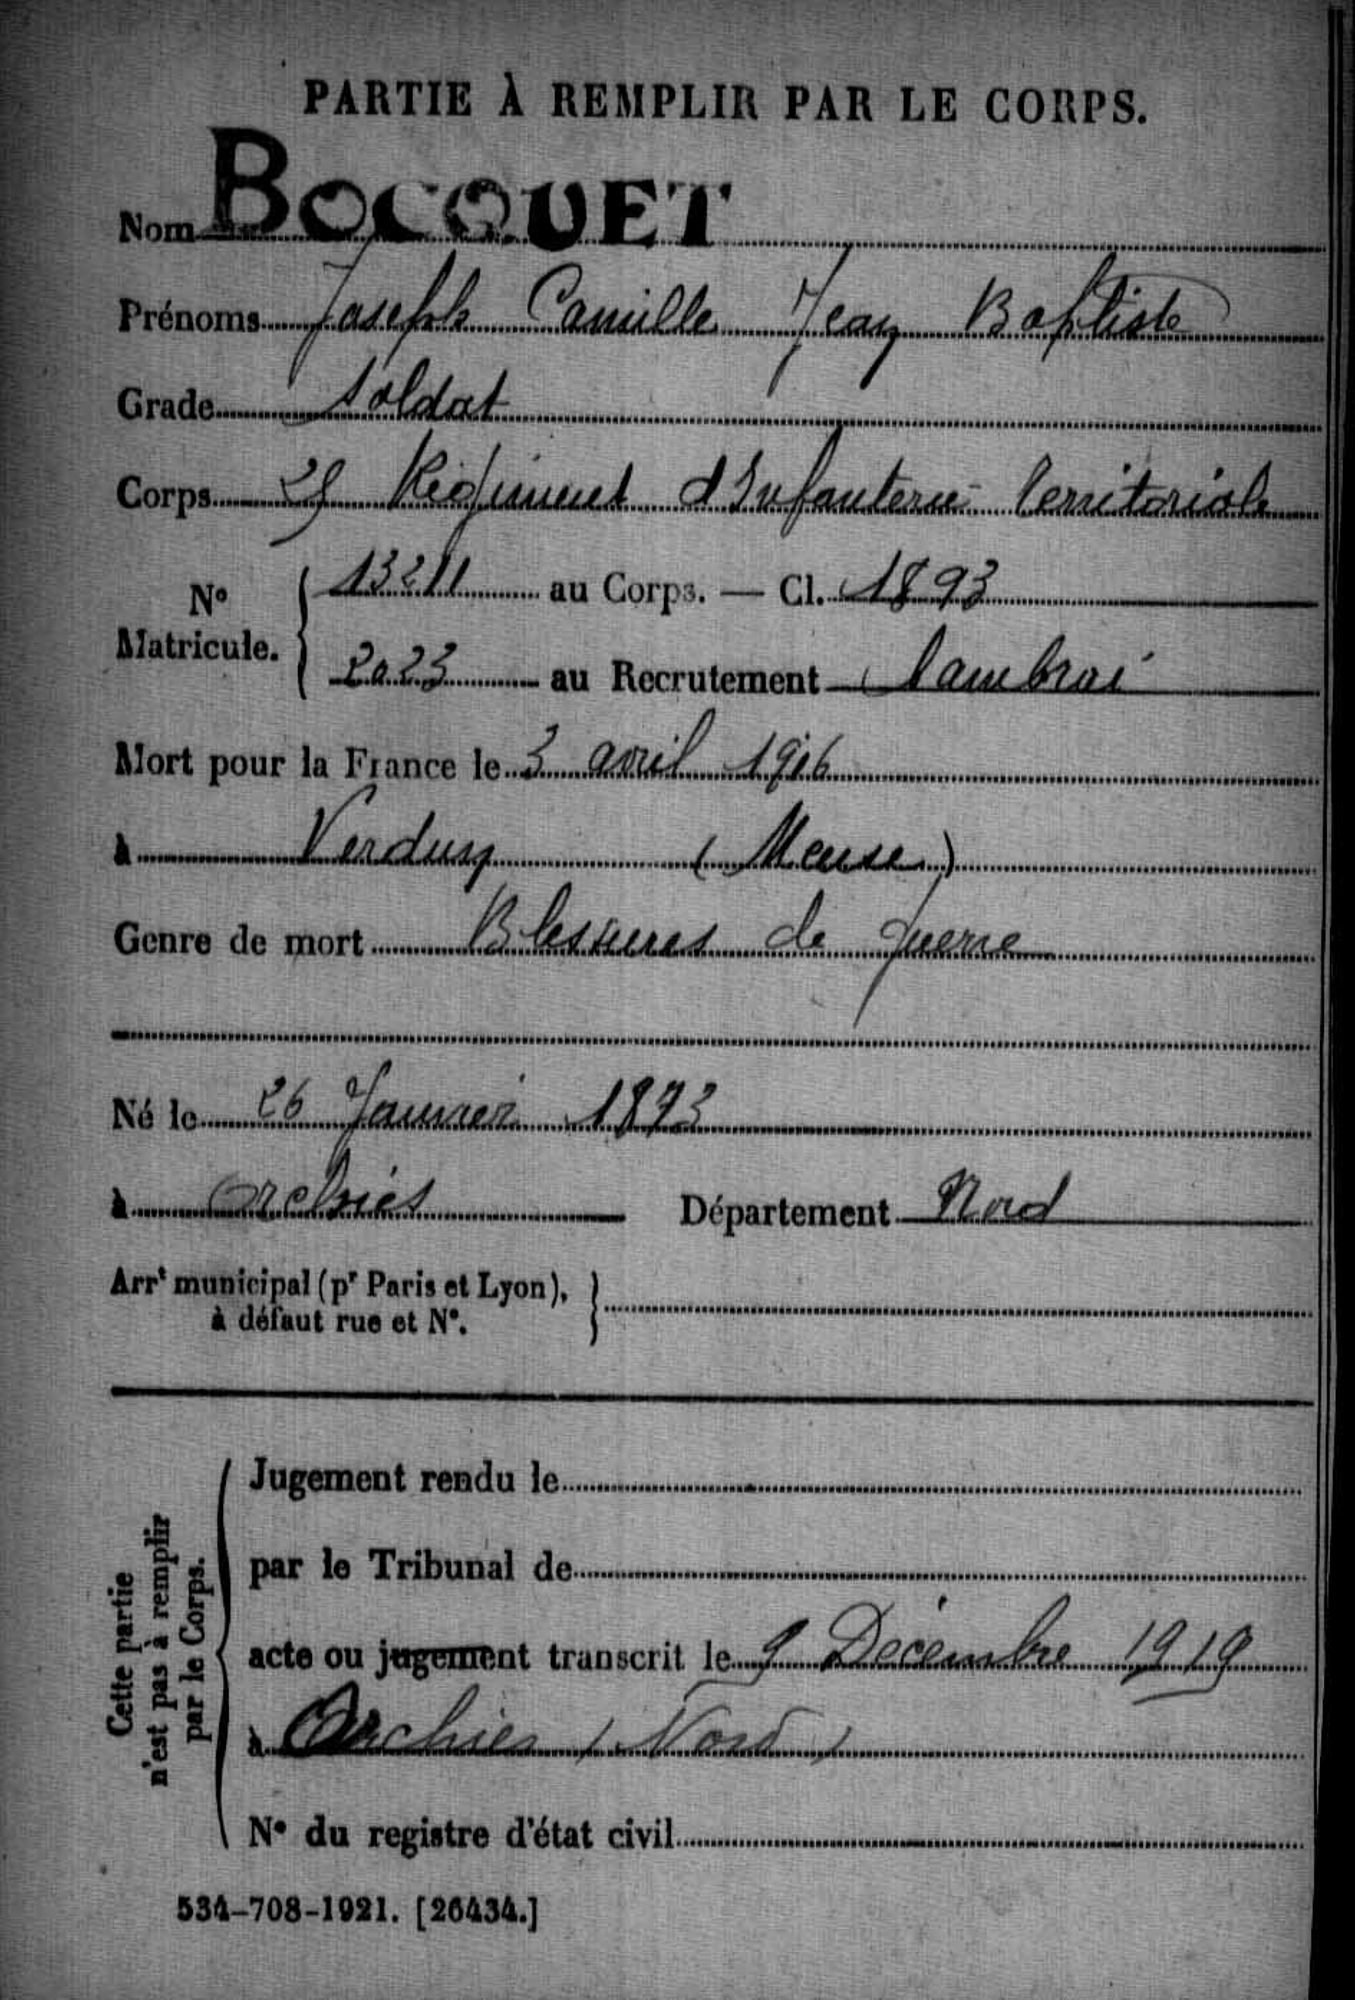 PARTIE À REMPLIR PAR LE CORPS.
Nom BOCQUET
Prénoms Joseph Camille Jean Baptiste
Grade Soldat
Corps Régiment d'Infanterie Territoriale
N° Matricule. { 13211 au Corps. — Cl. 1893
2023 au Recrutement Cambrai
Mort pour la France le 3 avril 1916
à Verdun (Meuse)
Genre de mort Blessures de guerre
Né le 26 Janvier 1873
à Orchies Département Nord
Arrt municipal (pr Paris et Lyon), }
à défaut rue et N°.
Cette partie
n'est pas à remplir
par le Corps.
Jugement rendu le
par le Tribunal de
acte ou jugement transcrit le 9 Décembre 1919
à Orchies (Nord)
N° du registre d'état civil
534-708-1921. [26434.]